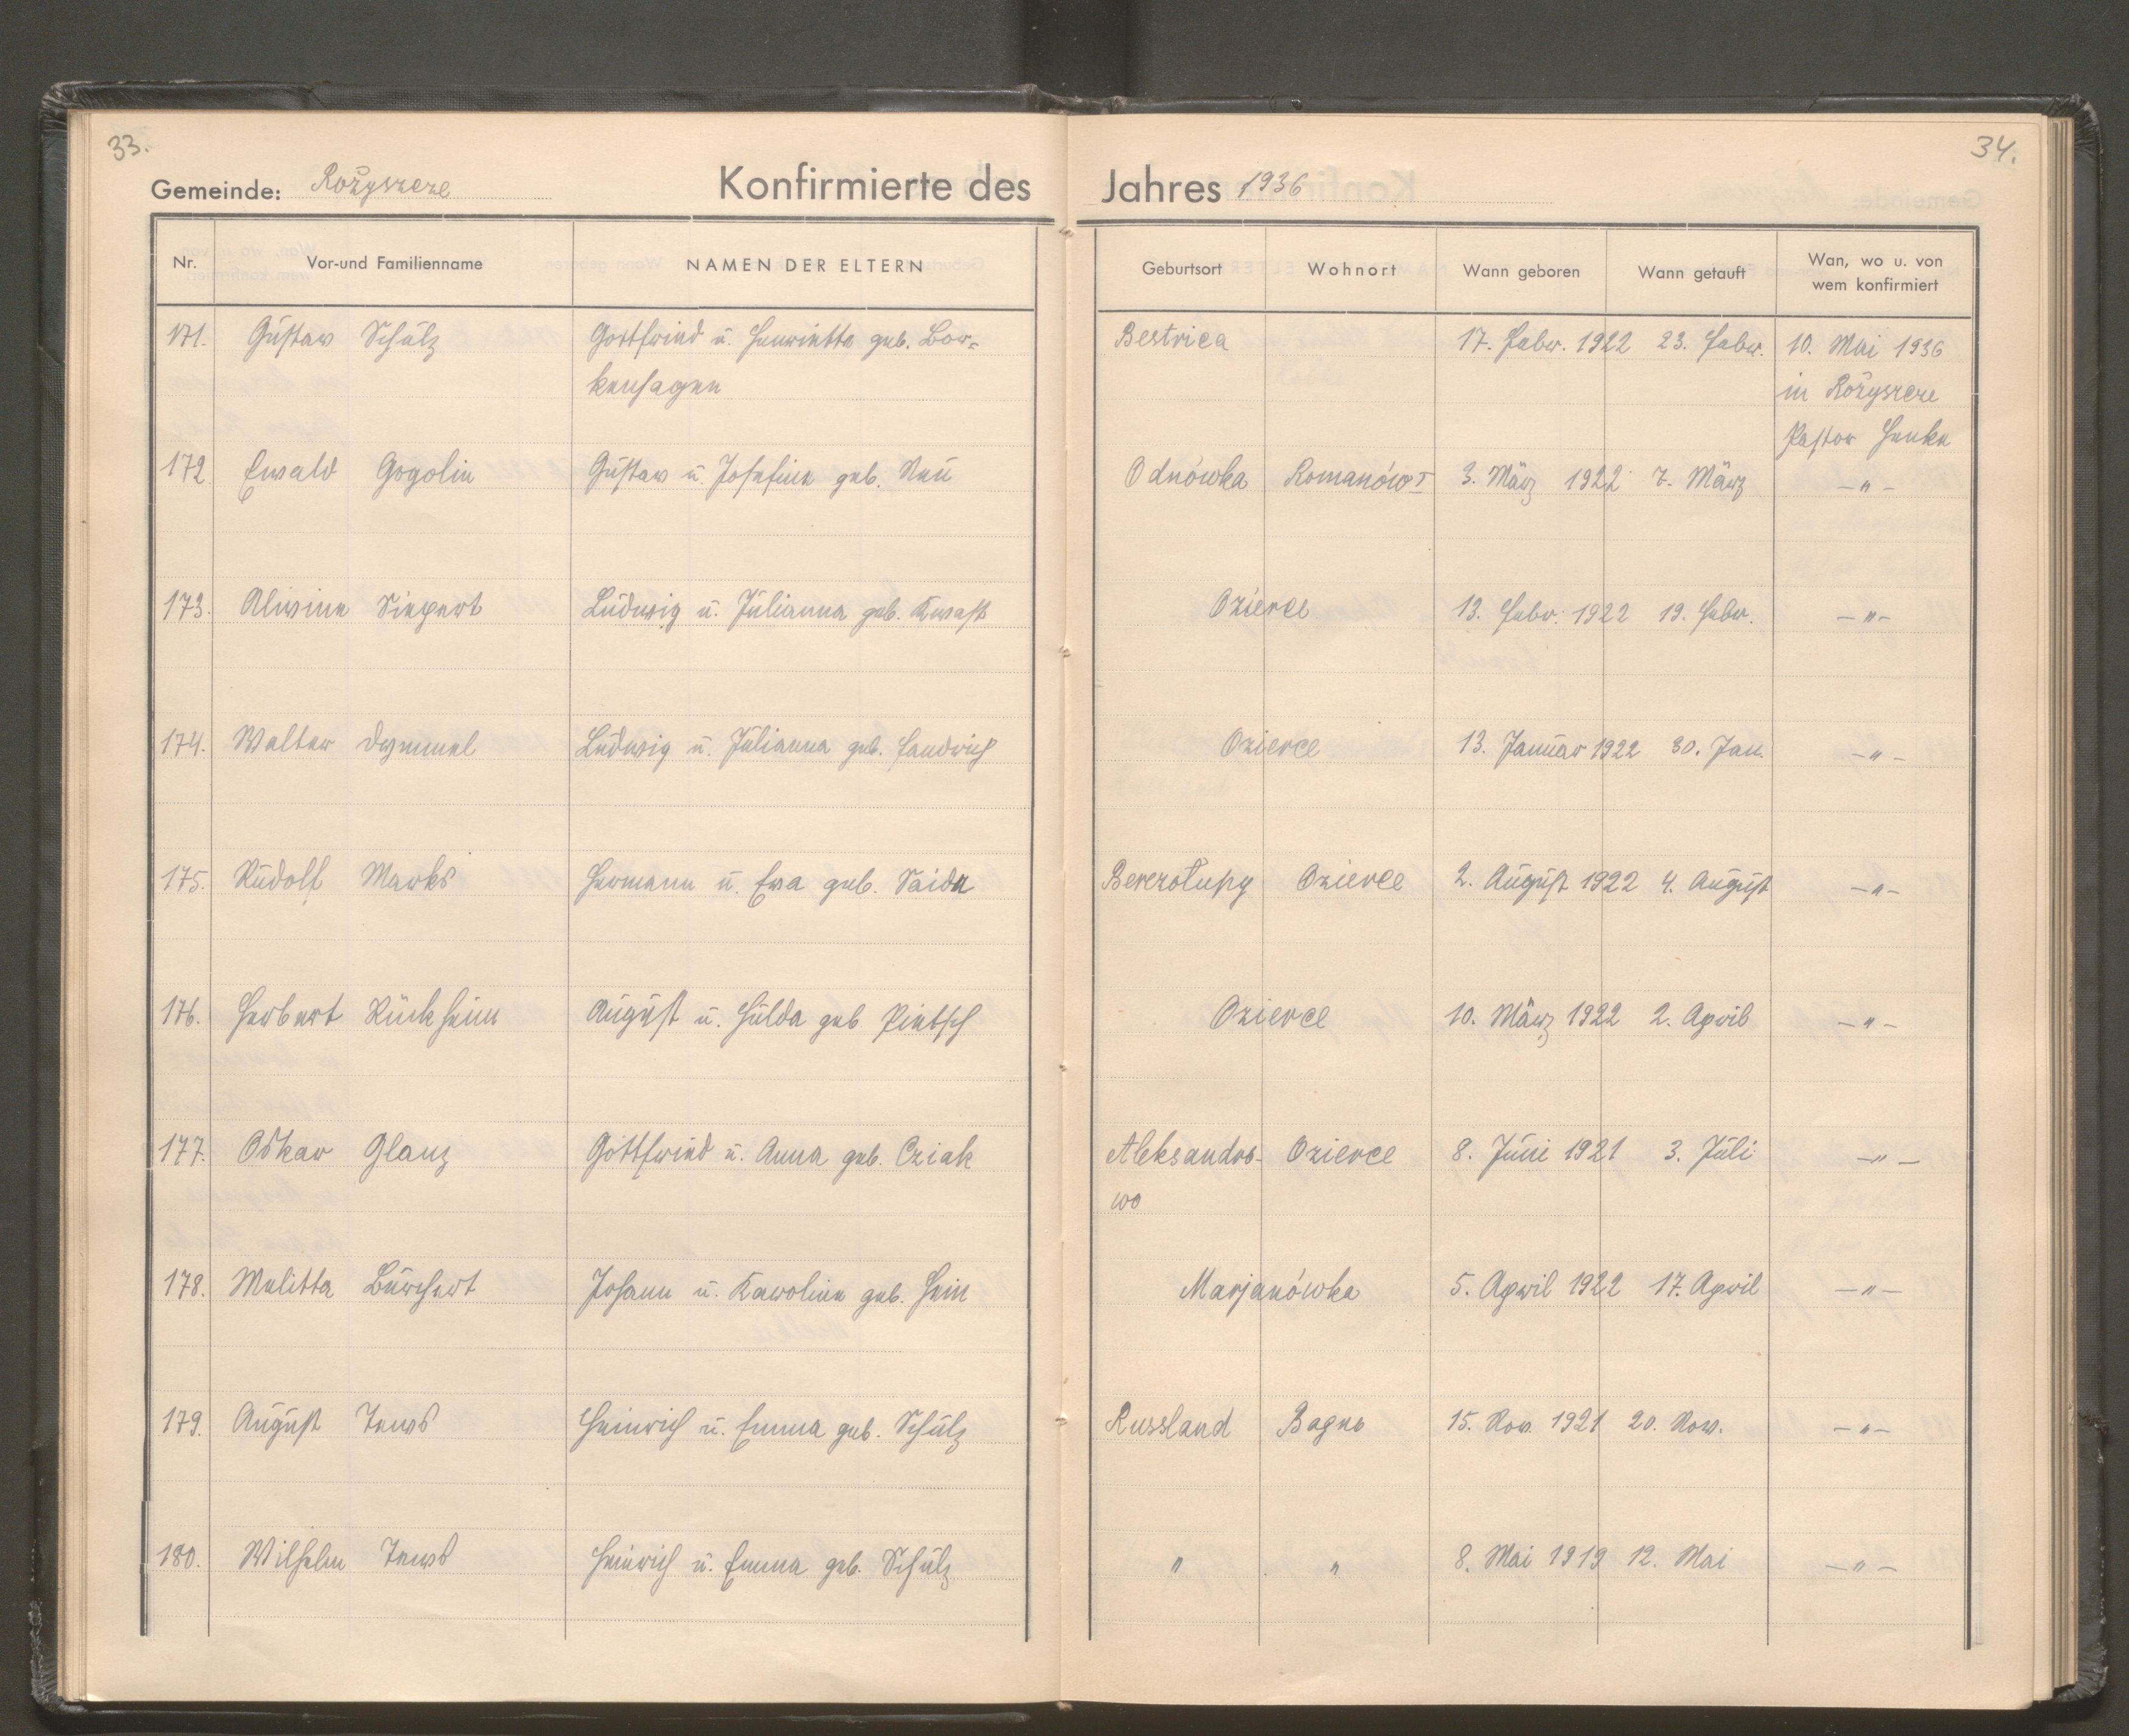 33.
34.
Gemeinde: Rożyszcze Konfirmierte des Jahres 1936
Nr. Vor-und Familienname NAMEN DER ELTERN Geburtsort Wohnort Wann geboren Wann getauft Wan, wo u. von
wem konfirmiert
171. Gustav Schulz Gottfried u. Henriette geb. Bor- Bestrica 17. Febr. 1922 23. Febr. 10. Mai 1936
kenhagen in Rożyszcze
Pastor Henke
172. Ewald Gogolin Gustav u. Josefine geb. Neu Odnówka Romanów I 3. März 1922 7. März -"-
173. Alwine Siegert Ludwig u. Julianna geb. Kwast Ozierce 13. Febr. 1922 19. Febr. -"-
174. Walter Dymmel Ludwig u. Julianna geb. Handrich Ozierce 13. Januar 1922 30. Jan. -"-
175. Rudolf Marks Hermann u. Ewa geb. Saida Berezołupy Ozierce 2. August 1922 4. August -"-
176. Herbert Rückheim August u. Hulda geb Pietsch Ozierce 10. März 1922 2. April -"-
177. Oskar Glanz Gottfried u. Anna geb. Cziak Aleksandro- Ozierce 8. Juni 1921 3. Juli -"-
wo
178. Melitta Burchert Johann u. Karoline geb. Hein Marjanówka 5. April 1922 17. April -"-
179. August Tews Heinrich u. Emma geb. Schulz Russland Bagno 15. Nov. 1921 20. Nov. -"-
180. Wilhelm Tews Heinrich u. Emma geb. Schulz " " 8. Mai 1919 12. Mai -"-